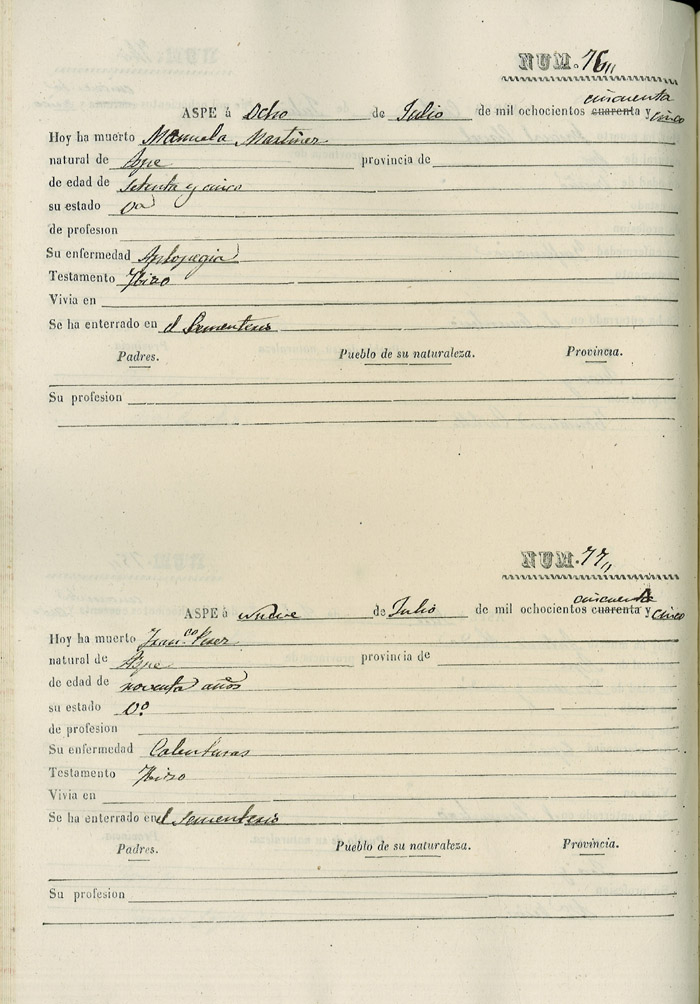 NUM. 76
cincuenta
ASPE á Ocho de Julio de mil ochocientos cuarenta y cinco
Hoy ha muerto Manuela Martinez
natural de Aspe provincia de
de edad de setenta y cinco
su estado Va
de profesion
Su enfermedad Aplopegia
Testamento Hizo
Vivia en
Se ha enterrado en el Sementerio
Padres. Pueblo de su naturaleza. Provincia.
Su profesion
NUM. 77
cincuenta
ASPE á nueve de Julio de mil ochocientos cuarenta y cinco
Hoy ha muerto Fran.co Perez
natural de Aspe provincia de
de edad de noventa años
su estado Vo
de profesion
Su enfermedad Calenturas
Testamento Hizo
Vivia en
Se ha enterrado en el Sementerio
Padres. Pueblo de su naturaleza. Provincia.
Su profesion